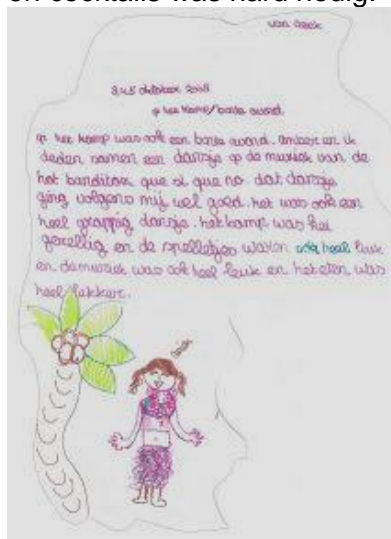 en cocktails was hard nodig.
van
3,4,5 oktober 2008
op het kamp/bonte avond.
op het kamp was ook een bonte avond. amber en ik
deden samen een dansje op de muziek van de
hot banditoz que si que no. dat dansje
ging volgens mij wel goed. het was ook een
heel grappig dansje. het kamp was hei
gezellig en de spelletjes waren ook heel leuk
en de muziek was ook heel leuk en het eten was
heel lekker.